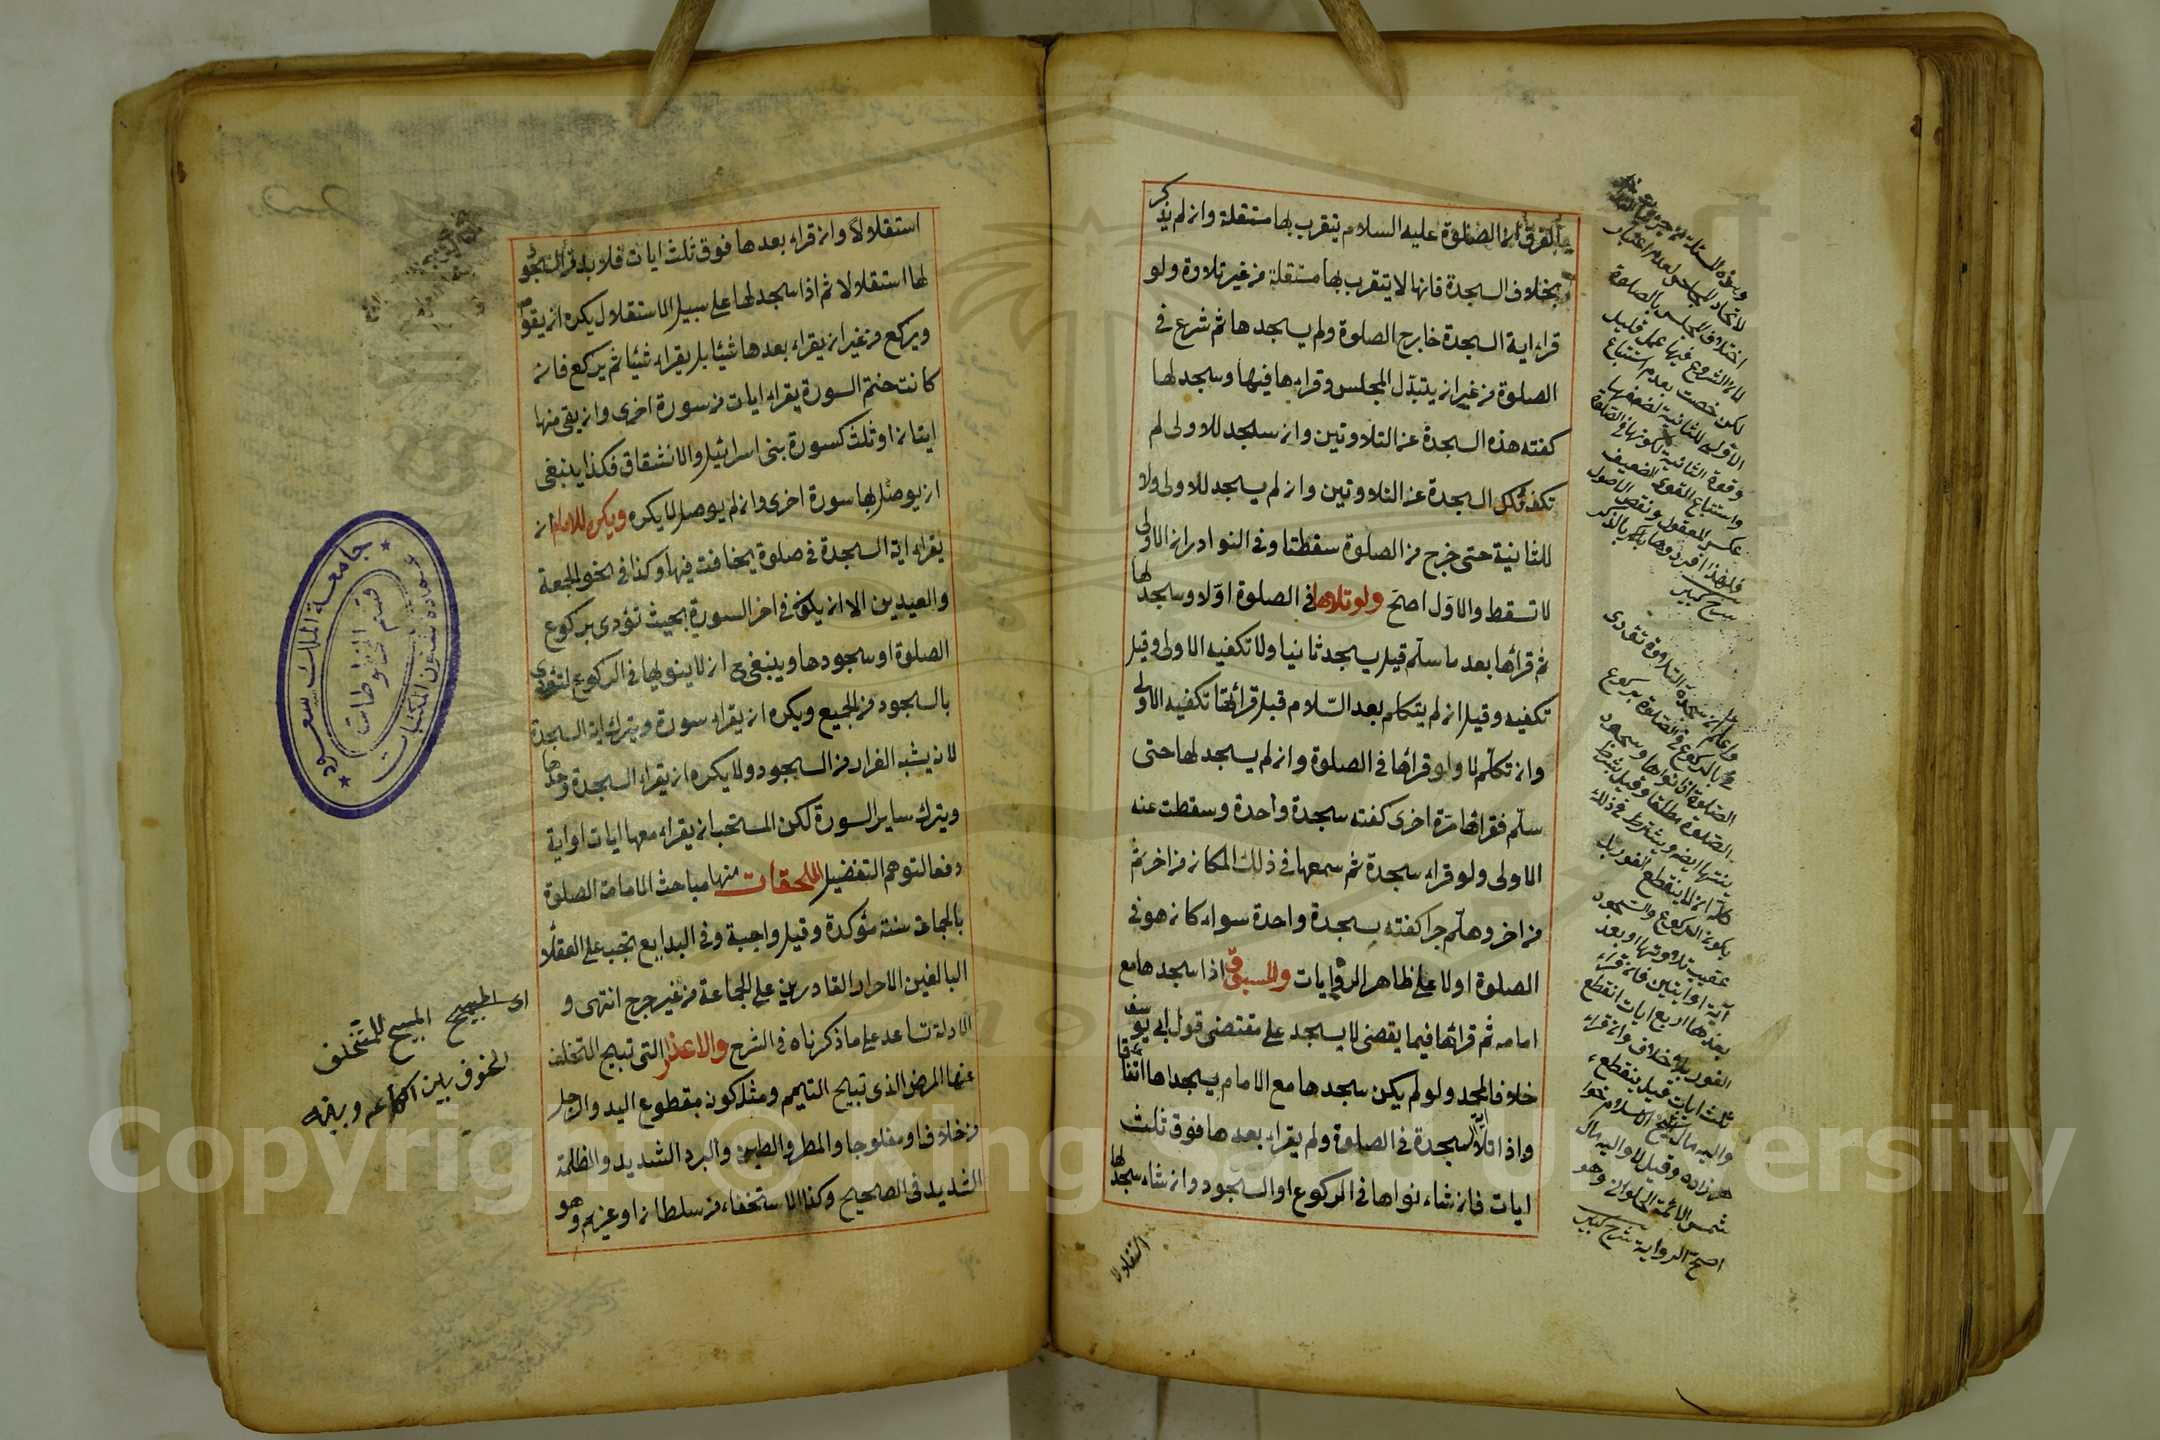 والفرق ان الصلوة عليه السلام يتقرب بها مستقلة وان لم يذكر
بخلاف السجدة فانها لا يتقرب بها مستقلة من غير تلاوة ولو
قراء اية السجدة خارج الصلوة ولم يسجدها ثم شرع في
الصلوة من غير ان يتبدل المجلس وقراءها فيها وسجد لها
كفته هذه السجدة عن التلاوتين وان سجد للاولى لم
تكف تلك السجدة عن التلاوتين وان لم يسجد للاولى ولا
للثانية حتى خرج من الصلوة سقطتا وفي النوادر ان الاولى
لا تسقط والاول اصح ولو تلاها في الصلوة اولا وسجد لها
ثم قرأها بعد ما سلم قيل يسجد ثانيا ولا تكفيه الاولى وقيل
تكفيه وقيل ان لم يتكلم بعد السلام قبل قرائتها تكفيه الاولى
وان تكلم لا ولو قرأها في الصلوة وان لم يسجد لها حتى
سلم فقرأها مرة اخرى كفته سجدة واحدة وسقطت عنه
الاولى ولو قراء سجدة ثم سمعها في ذلك المكان من اخر ثم
من اخر وهلم جرا كفته سجدة واحدة سواء كان هو في
الصلوة اولا على ظاهر الروايات والمسبوق اذا سجدها مع
امامه ثم قرأها فيما يقضى لا يسجد على مقتضى قول ابي يوسف
خلافا لمحمد ولو لم يكن سجدها مع الامام يسجدها اتفاقا
واذا تلا اية السجدة في الصلوة ولم يقراء بعدها فوق ثلث
ايات فان شاء نواها في الركوع او السجود وان شاء سجد لها
استقلالا
لاتحاد المجلس لعدم اعتبار
اختلاف المجلس بالصلوة
لان الشروع فيها عمل قليل
لكن خصت بعدم استتباع
الاولى للثانية لضعفها
وقوة الثانية لكونها في الصلوة
واستتباع القوى الضعيف
عكس المعقول ونقض الاصول
شرح كبير
واعلم ان سجدة التلاوة تتؤدى
بالركوع في الصلوة بركوع
الصلوة اذا نواها وسجود
الصلوة مطلقا وقيل بشرط
ينتها ايضا ويشترط في ذلك
كله ان لا ينقطع الفور بل
يكون الركوع والسجود
عقيب تلاوتها او بعد
آية او ايتين فان قراء
بعدها اربع ايات انقطع
الفور بلا خلاف وان قراء
ثلث ايات قيل ينقطع
واليه مال شيخ الاسلام خواهر
زاده وقيل لا واليه مال
شمس الائمة الحلوانى وهو
اصح الرواية شرح كبير
استقلالا وان قراء بعدها فوق ثلث ايات فلا بد من السجود
لها استقلالا ثم اذا سجد لها على سبيل الاستقلال يكره ان يقوم
ويركع من غير ان يقراء بعدها شيئا بل يقراء شيئا ثم يركع فان
كانت ختم السورة يقراء ايات من سورة اخرى وان بقى منها
ايتان او ثلث كسورة بنى اسرائيل والانشقاق فكذا ينبغى
ان يوصل بها سورة اخرى وان لم يوصل لا يكره ويكره للامام ان
يقراء اية السجدة في صلوة يخافت فيها وكذا في نحو الجمعة
والعيدين الا ان يكون في اخر السورة بحيث تؤدى بركوع
الصلوة او سجودها وينبغى ان لا ينويها في الركوع لتؤدى
بالسجود من الجميع ويكره ان يقراء سورة ويترك اية السجدة
لانه يشبه الفرار من السجود ولا يكره ان يقراء السجدة وحدها
ويترك ساير السورة لكن المستحب ان يقراء معها ايات او اية
دفعا لتوهم التفضيل الملحقات منها مباحث الامامة الصلوة
بالجماعة سنة مؤكدة وقيل واجبة وفي البدايع تجب على العقلاء
البالغين الاحرار القادرين على الجماعة من غير حرج انتهى و
الادلة تساعد على ما ذكرناه في الشرح والاعذار التى تبيح التخلف
عنها المرض الذى تبيح التيمم ومثله كونه مقطوع اليد والرجل
من خلاف او مفلوجا والمطر والطين والبرد الشديد والظلمة
الشديدة في الصحيح وكذا الاستخفاء من سلطان او غريم وهو
اى المبيح للتخلف
جامعة الملك سعود
عمادة شؤون المكتبات
قسم المخطوطات
Copyright © King Saud University